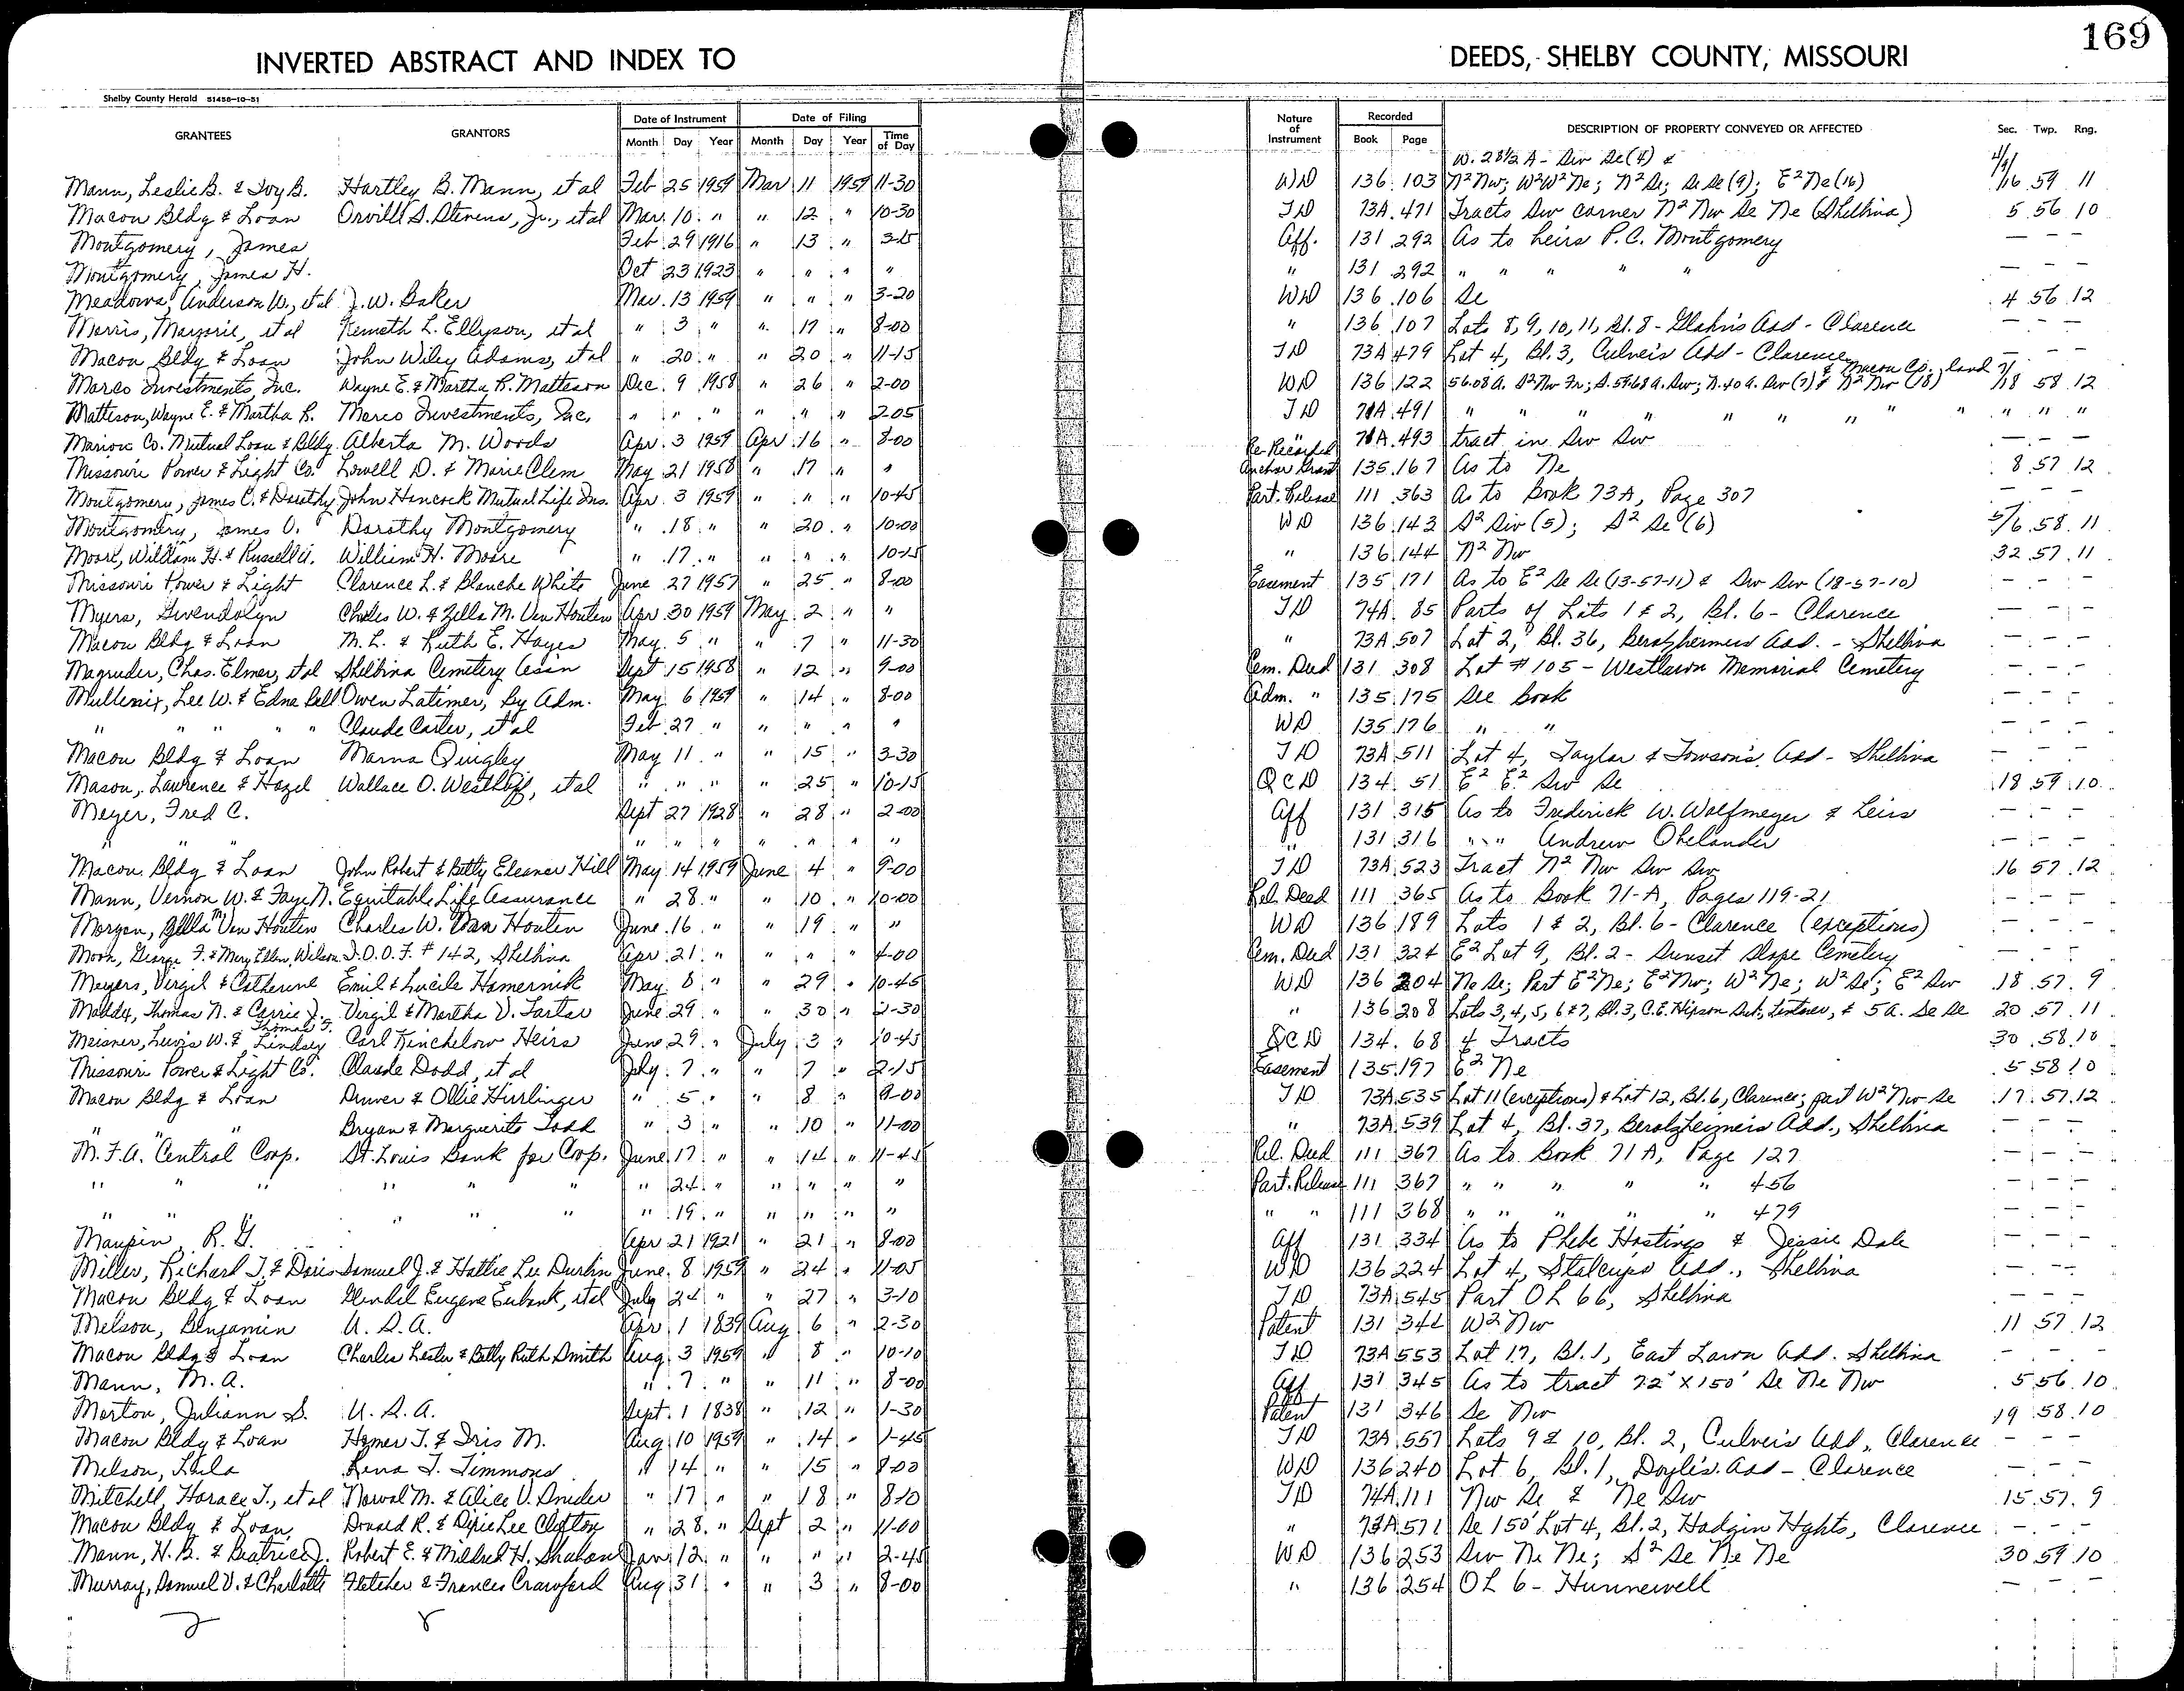 169
INVERTED ABSTRACT AND INDEX TO DEEDS, SHELBY COUNTY, MISSOURI
Shelby County Herald 51456-10-51
GRANTEES GRANTORS Date of Instrument Date of Filing Nature of Instrument Recorded DESCRIPTION OF PROPERTY CONVEYED OR AFFECTED Sec. Twp. Rng.
Month Day Year Month Day Year Time of Day Book Page
W. 28 1/2 A - Sw Se (4) & 4/9/
Mann, Leslie B. & Ivy B. Hartley B. Mann, et al Feb 25 1959 Mar 11 1959 11-30 WD 136 103 N² Nw; W² W² Ne; N² Se; Se Se (9); E² Ne (16) 16 59 11
Macon Bldg & Loan Orville S. Stevens, Jr., et al Mar. 10 " " 12 " 10-30 TD 73A 471 Tracts Sw corner N² Nw Se Ne (Shelbina) 5 56 10
Montgomery, James Feb 29 1916 " 13 " 3-15 Aff. 131 292 As to heirs P.C. Montgomery — — —
Montgomery, James H. Oct 23 1923 " " " " " 131 292 " " " " " — — —
Meadows, Anderson W., et al J. W. Baker Mar. 13 1959 " " " 3-20 WD 136 106 Se 4 56 12
Morris, Marjorie, et al Kenneth L. Ellyson, et al " 3 " " 17 " 8-00 " 136 107 Lots 8, 9, 10, 11, Bl. 8 - Glahn's Add - Clarence — — —
Macon Bldg & Loan John Wiley Adams, et al " 20 " " 20 " 11-15 TD 73A 479 Lot 4, Bl. 3, Culver's Add - Clarence — — —
& Macon Co. land 7/
Marco Investments, Inc. Wayne E. & Martha R. Matteson Dec. 9 1958 " 26 " 2-00 WD 136 122 56.08 A. S² Nw Fr; S. 59.68 A. Sw; N. 40 A. Sw (7) & N² Nw (18) 18 58 12
Matteson, Wayne E. & Martha R. Marco Investments, Inc. " " " " " " 2-05 TD 71A 491 " " " " " " " " " " "
Marion Co. Mutual Loan & Bldg Alberta M. Woods Apr. 3 1959 Apr 16 " 8-00 " 71A 493 tract in Sw Sw — — —
Missouri Power & Light Co. Lowell D. & Marie Clem May 21 1958 " 17 " " Re-Recorded Anchor Grant 135 167 As to Ne 8 57 12
Montgomery, James C. & Dorothy John Hancock Mutual Life Ins. Apr. 3 1959 " " " 10-45 Part. Release 111 363 As to Book 73A, Page 307 — — —
Montgomery, James O. Dorothy Montgomery " 18 " " 20 " 10-00 WD 136 143 S² Sw (5); S² Se (6) 5/6 58 11
Moore, William H. & Russell A. William H. Moore " 17 " " " " 10-15 " 136 144 N² Nw 32 57 11
Missouri Power & Light Clarence L. & Blanche White June 27 1957 " 25 " 8-00 Easement 135 171 As to E² Se Se (13-57-11) & Sw Sw (18-57-10) — — —
Myers, Gwendolyn Charles W. & Zella M. Van Houten Apr 30 1959 May 2 " " TD 74A 85 Parts of Lots 1 & 2, Bl. 6 - Clarence — — —
Macon Bldg & Loan M. L. & Ruth E. Hayes May 5 " " 7 " 11-30 " 73A 507 Lot 2, Bl. 36, Berolzheimers Add. - Shelbina — — —
Magruder, Chas. Elmer, et al Shelbina Cemetery Ass'n Sept 15 1958 " 12 " 9-00 Cem. Deed 131 308 Lot #105 - Westlawn Memorial Cemetery — — —
Mullenix, Lee W. & Edna Bell Owen Latimer, By Adm. May 6 1959 " 14 " 8-00 Adm. " 135 175 See Book — — —
" " " " Claude Carter, et al Feb 27 " " " " " WD 135 176 " " — — —
Macon Bldg & Loan Marna Quigley May 11 " " 15 " 3-30 TD 73A 511 Lot 4, Taylor & Towson's Add - Shelbina — — —
Mason, Laurence & Hazel Wallace O. Westhoff, et al " " " " 25 " 10-15 QCD 134 51 E² E² Sw Se 18 59 10
Meyer, Fred C. Sept 27 1928 " 28 " 2-00 Aff 131 315 As to Frederick W. Wolfmeyer & heirs — — —
" " " " " " " " " " " 131 316 " " Andrew Ohelander — — —
Macon Bldg & Loan John Robert & Betty Eleanor Hill May 14 1959 June 4 " 9-00 TD 73A 523 Tract N² Nw Sw Sw 16 57 12
Mann, Vernon W. & Faye N. Equitable Life Assurance " 28 " " 10 " 10-00 Rel. Deed 111 365 As to Book 71-A, Pages 119-21 — — —
Morgan, Zella M Van Houten Charles W. Van Houten June 16 " " 19 " " WD 136 189 Lots 1 & 2, Bl. 6 - Clarence (exceptions) — — —
Moon, George F. & Mary Ellen Wilson I.O.O.F. #142, Shelbina Apr. 21 " " " " 4-00 Cem. Deed 131 324 E² Lot 9, Bl. 2 - Sunset Slope Cemetery — — —
Meyers, Virgil & Catherine Emil & Lucile Hamernick May 8 " " 29 " 10-45 WD 136 204 Ne Se; Part E² Ne; E² Nw; W² Ne; W² Se; E² Sw 18 57 9
Maddy, Thomas N. & Carrie J. Virgil & Martha V. Farter June 29 " " 30 " 2-30 " 136 208 Lots 3, 4, 5, 6 & 7, Bl. 3, C.E. Hipson Sub, Lentner, & 5 A. Se Se 20 57 11
Meisner, Lewis W. & Thomas F. Lindsey Carl Kinchelow Heirs June 29 " July 3 " 10-45 QCD 134 68 4 Tracts 30 58 10
Missouri Power & Light Co. Claude Dodd, et al July 7 " " 7 " 2-15 Easement 135 197 E² Ne 5 58 10
Macon Bldg & Loan Druver & Ollie Hirrlinger " 5 " " 8 " 9-00 TD 73A 535 Lot 11 (exceptions) & Lot 12, Bl. 6, Clarence; part W² Nw Se 17 57 12
" " " Bryan & Marguerite Todd " 3 " " 10 " 11-00 " 73A 539 Lot 4, Bl. 37, Berolzheimers Add., Shelbina — — —
M.F.A. Central Coop. St. Louis Bank for Coop. June 17 " " 14 " 11-45 Rel. Deed 111 367 As to Book 71A, Page 127 — — —
" " " " " " " 24 " " " " " Part. Release 111 367 " " " " " 456 — — —
" " " " " " " 19 " " " " " " " 111 368 " " " " " 479 — — —
Maupin R. G. Apr 21 1921 " 21 " 8-00 Aff 131 334 As to Phebe Hastings & Jessie Dale — — —
Miller, Richard J. & Doris Samuel J. & Hattie Lee Durbin June 8 1959 " 24 " 11-05 WD 136 224 Lot 4, Stalcups Add., Shelbina — — —
Macon Bldg & Loan Glendel Eugene Eubank, et al July 24 " " 27 " 3-10 TD 73A 545 Part OL 66, Shelbina — — —
Melson, Benjamin U.S.A. Apr 1 1839 Aug 6 " 2-30 Patent 131 342 W² Nw 11 57 12
Macon Bldg & Loan Charles Lester & Betty Ruth Smith Aug 3 1959 " 8 " 10-10 TD 73A 553 Lot 17, Bl. 1, East Lawn Add. Shelbina — — —
Mann, M. A. " 7 " " 11 " 8-00 Aff 131 345 As to tract 72' x 150' Se Ne Nw 5 56 10
Morton, Juliann S. U.S.A. Sept. 1 1838 " 12 " 1-30 Patent 131 346 Se Nw 19 58 10
Macon Bldg & Loan Homer T. & Iris M. Aug 10 1959 " 14 " 1-45 TD 73A 557 Lots 9 & 10, Bl. 2, Culver's Add, Clarence — — —
Melson, Lula Lena T. Timmons " 14 " " 15 " 8-00 WD 136 240 Lot 6, Bl. 1, Doyle's Add - Clarence — — —
Mitchell, Horace T., et al Norval M. & Alice V. Snider " 17 " " 18 " 8-10 TD 74A 111 Nw Se & Ne Sw 15 57 9
Macon Bldg & Loan Donald R. & Dixie Lee Clifton " 28 " Sept 2 " 11-00 " 73A 571 Se 150' Lot 4, Bl. 2, Hodgin Hghts, Clarence — — —
Mann, H. B. & Beatrice J. Robert E. & Mildred H. Shahan Jan 12 " " " " 2-45 WD 136 253 Sw Ne Ne; S² Se Ne Ne 30 59 10
Murray, Samuel V. & Charlotte Fletcher & Frances Crawford Aug 31 " " 3 " 8-00 " 136 254 OL 6 - Hunnewell — — —